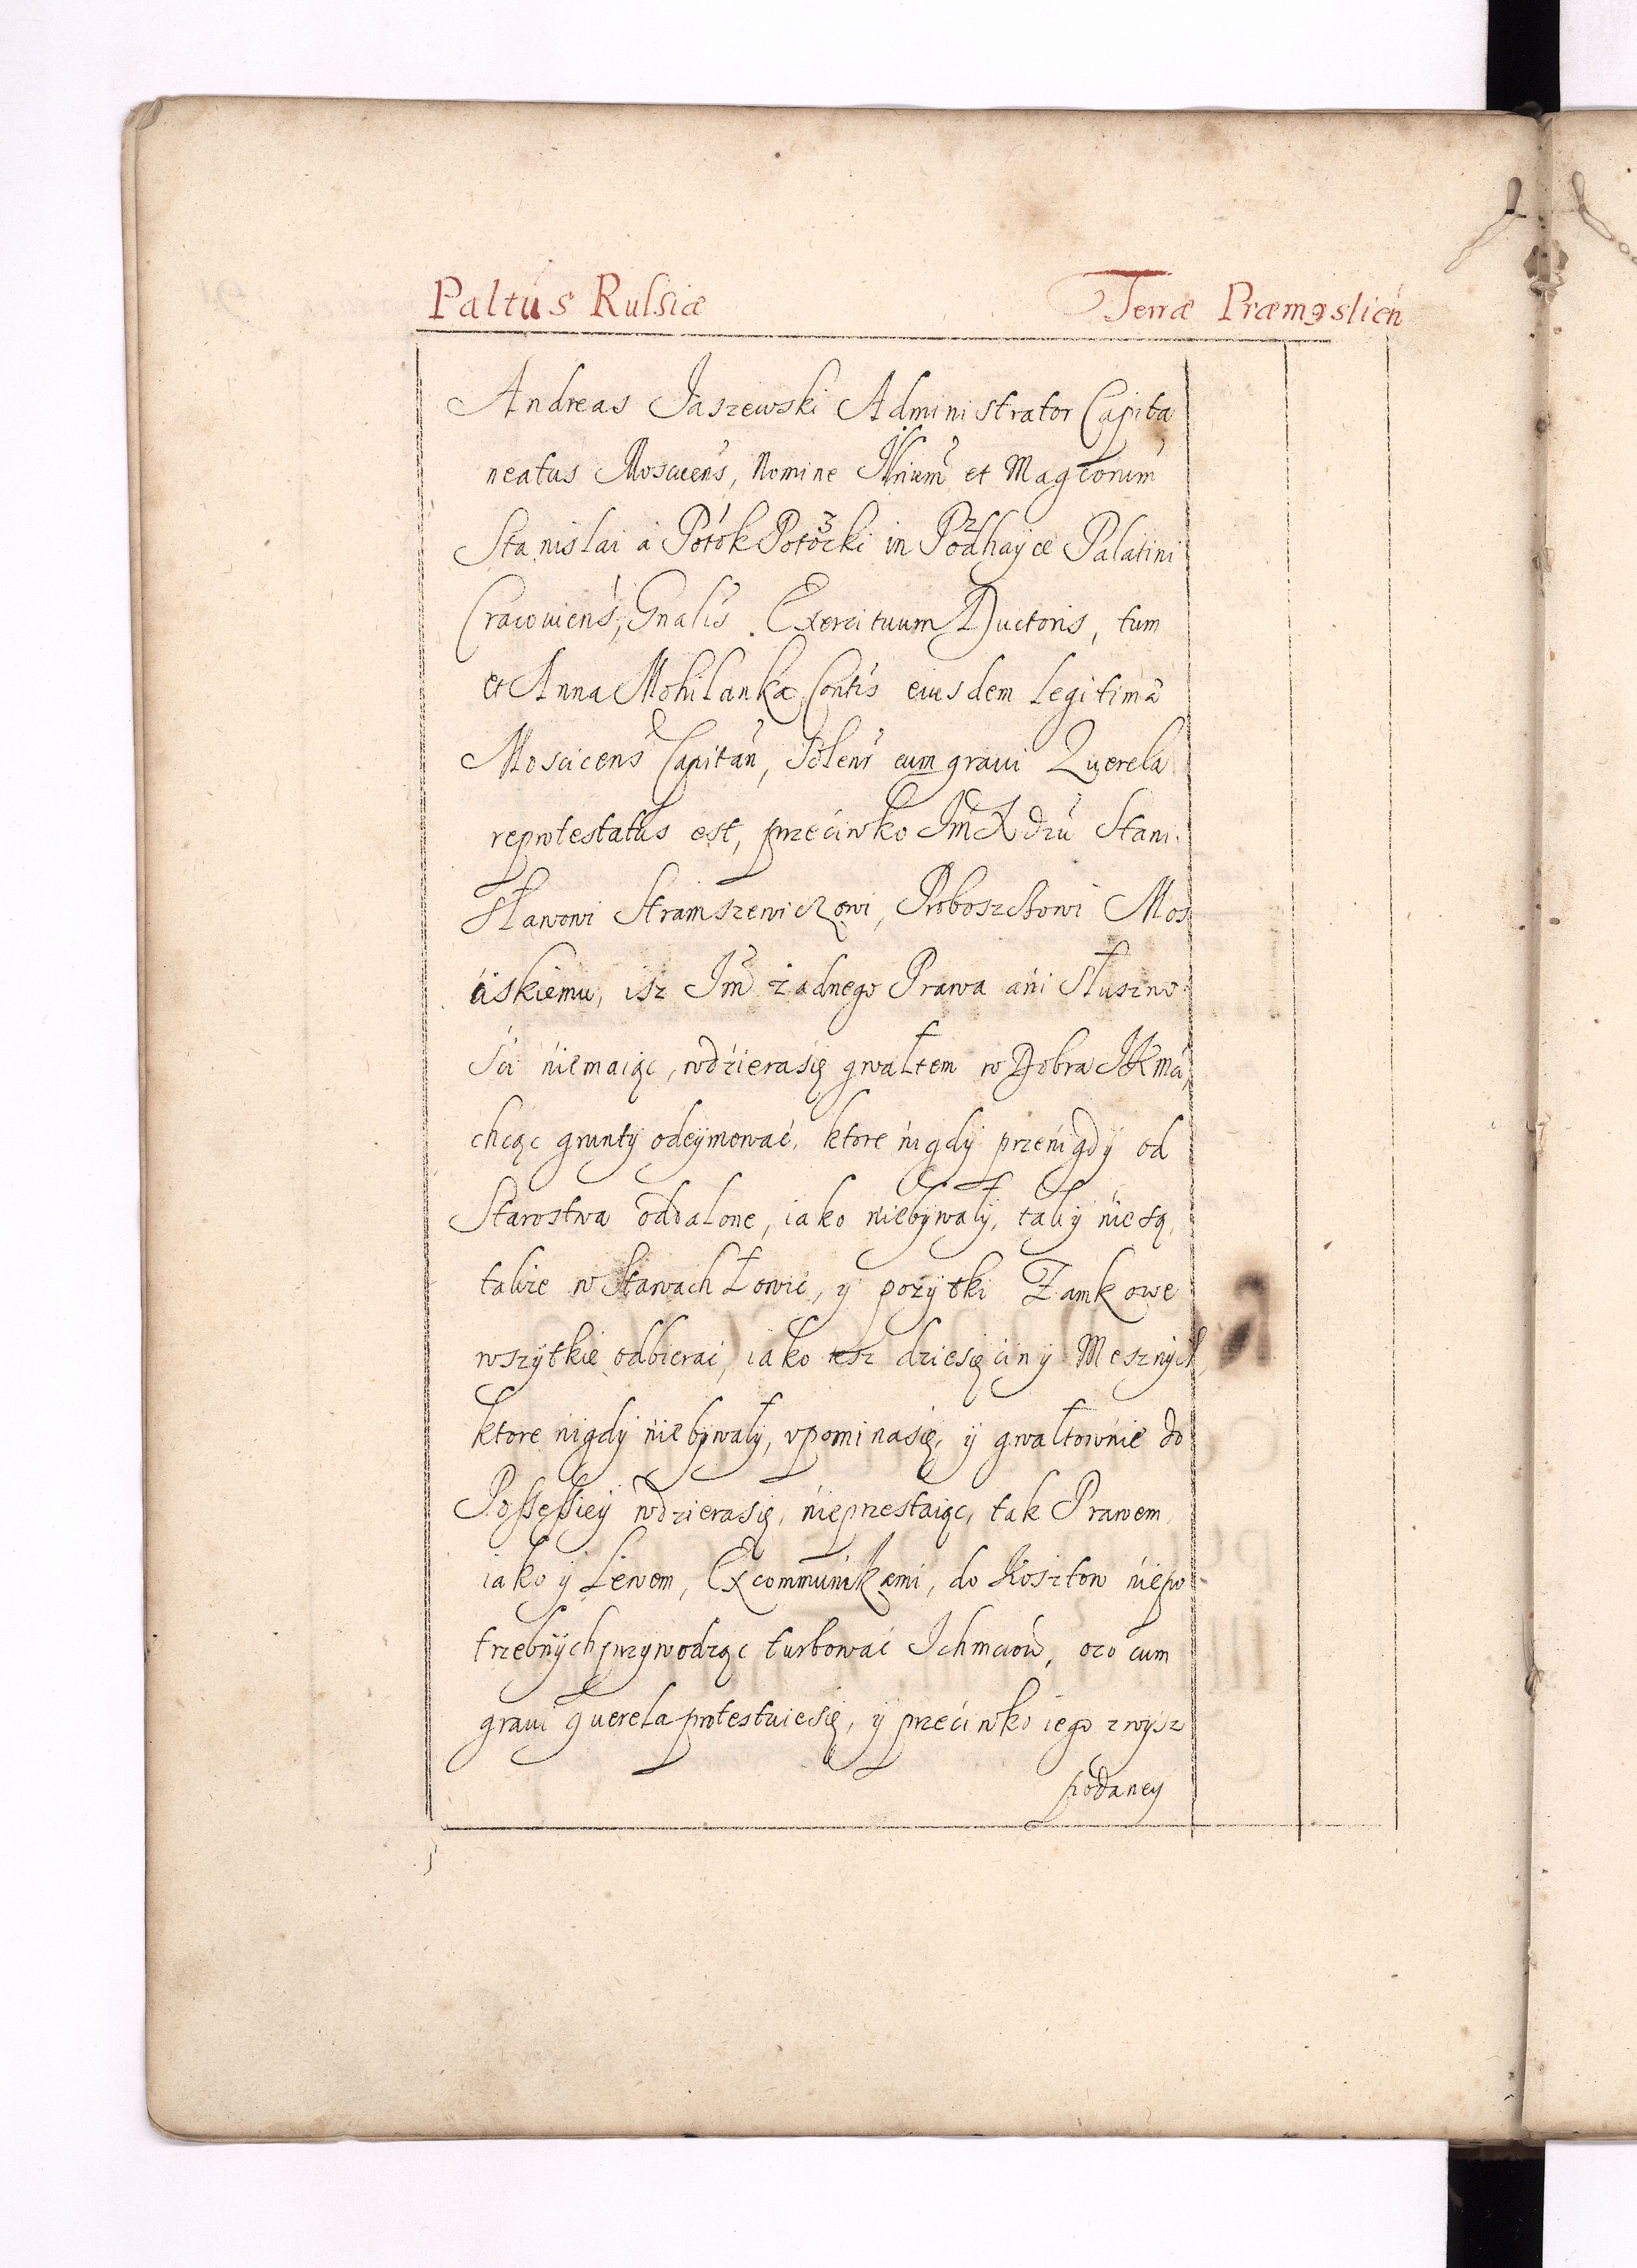 Paltus Russiæ Terræ Præmyslien
Andreas Jaszewski Administrator Capita
neatus Moscicens, Nomine Illrium et Magcorum
Stanislai à Potok Potocki in Podhayce Palatini
Cracoviens, Gnalis Exercituum Ductoris, tum
et Anna Mohilanka Contis eiusdem legitima
Moscicens Capitan, Solens cum graui Querela
reprotestatus est, przeciwko Jm X dzu Stani
sławowi Stramszewiczowi, Proboszczowi Mos
ciskiemu, isz Jm żadnego Prawa ani słuszno
ści niemaiąc, wdziera się gwałtem w Dobra JKmci,
chcąc grunty odeymować, ktore nigdy przenigdy od
Starostwa oddalone, iako niebywały, tak y niesą,
takze w Stawach Łowić, y pożytki Zamkowe
wszytkie odbierać, iako tesz dziesięciny Mesznych,
ktore nigdy niebywały, vpomina się, y gwałtownie do
Possessiey wdziera się, nieprzestaiąc, tak Prawem,
iako y Lewem, Excommunikami, do Kosztow niepo
trzebnych przywodząc turbować Ichmciow, oco cum
graui querela protestuie się, y przeciwko iego zwysz
podaney